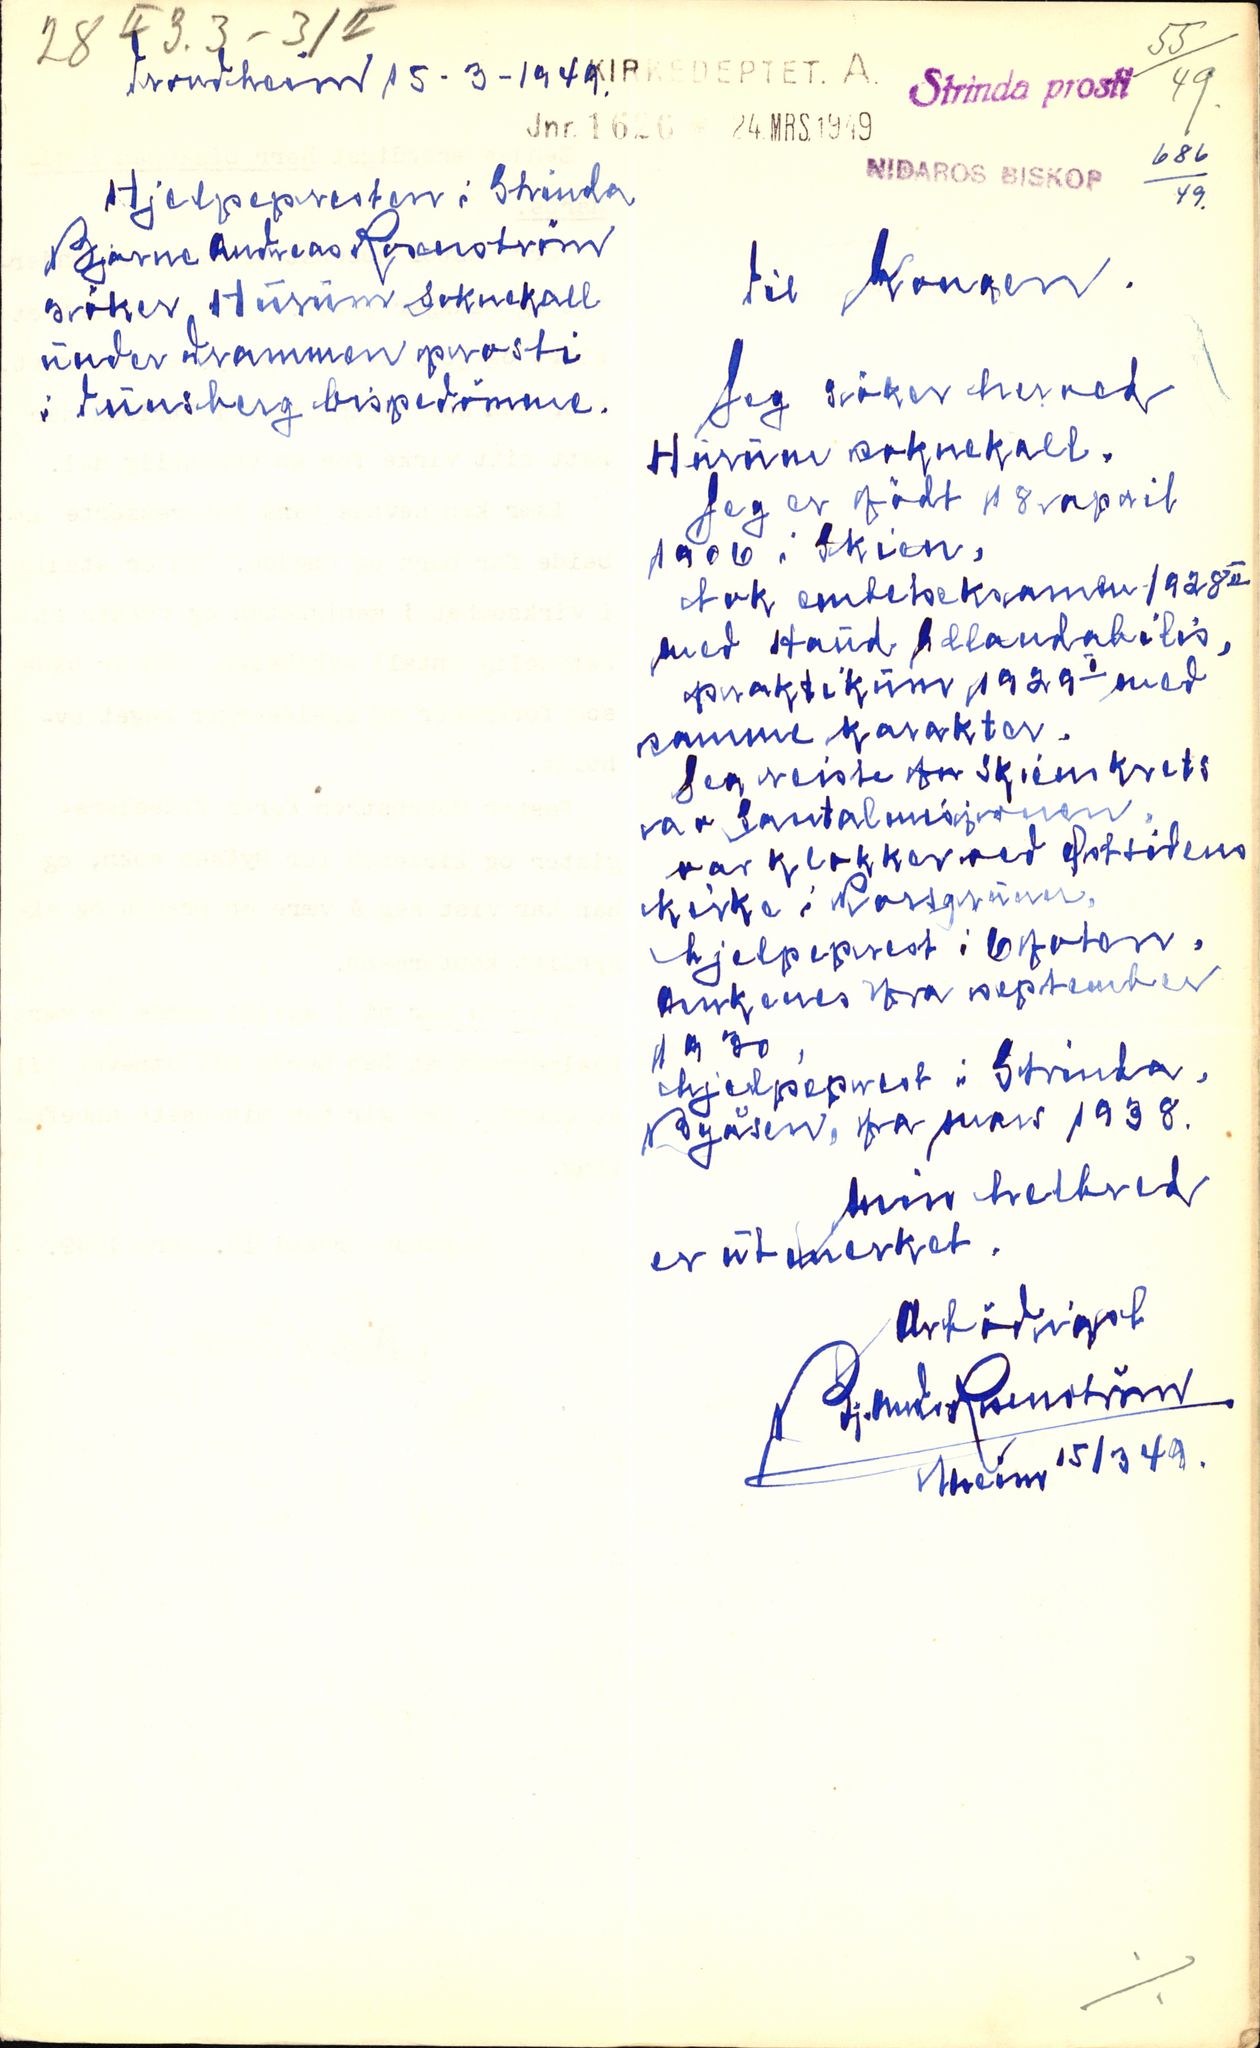 28 II 3.3 - 3/II
Trondheim 15-3-1949.
KIRKEDEPTET. A.
Jnr. 1626 * 24.MRS.1949
Strinda prosti
55/49.
NIDAROS BISKOP
686/49.
Hjelpepresten i Strinda
Bjarne Andreas Rosenström
söker Hurum soknekall
under Drammen prosti
i Tunsberg bispedömme.
Til Kongen.
Jeg söker herved
Hurum soknekall.
Jeg er födt 18. april
1906 i Skien,
tok embetseksamen 1928 II
med Haud Illaudabilis,
praktikum 1929 I med
samme karakter.
Jeg reiste for Skienskrets
av Santalmisjonen,
var klokker ved Østsidens
kirke i Porsgrunn,
hjelpeprest i Ofoten,
Ankenes fra september
1930,
hjelpeprest i Strinda,
Byåsen, fra mars 1938.
Min helbred
er utmerket.
Ærbödrigst
Bj. Andr. Rosenström
Theim 15/3 49.